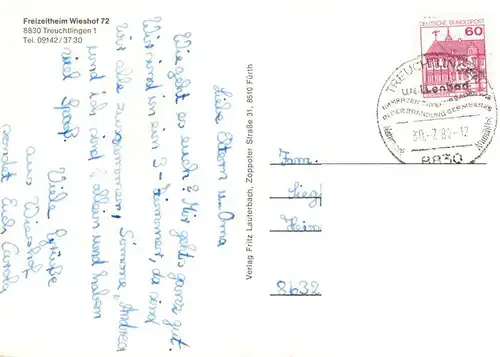 Freizeitheim Wieshof 72
8830 Treuchtlingen 1
Tel. 09142/37 30
Liebe Eltern u. Oma
Wie geht es euch? Mir geht's ganz gut.
Wir sind in ein 3 - Zimmer, da sind
wir alle zusammen, Simone, Andrea
und ich sind allein und haben
viel Spaß.
Viele Grüße
aus Wieshof
sendet Euch
Verlag Fritz Lauterbach, Zoppoter Straße 31, 8510 Fürth
DEUTSCHE BUNDESPOST
60
TREUCHTLINGEN
Wellenbad
IM HERZEN
IN DER BRANDUNG
-7.82-12
8830
Fam.
Sieg
Hein
8632